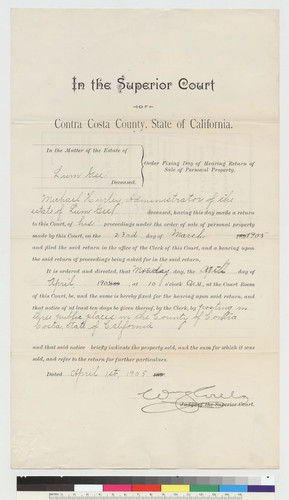 In the Superior Court
OF
Contra Costa County, State of California.
In the Matter of the Estate of
Lum Gee
Deceased.
Order Fixing Day of Hearing Return of
Sale of Personal Property.
Michael Hurley Administrator of the
estate of Lum Gee deceased, having this day made a return
to this Court, of his proceedings under the order of sale of personal property
made by this Court, on the 23rd day of March 1905
and filed the said return in the office of the Clerk of this Court, and a hearing upon
the said return of proceedings being asked for in the said return.
It is ordered and directed, that Monday day, the day of
April 190 at 10 o'clock A.M., at the Court Room
of this Court, be, and the same is hereby fixed for the hearing upon said return, and
that notice of at least ten days be given thereof, by the Clerk, by posting in
three Public places in the County of Contra
Costa State of California
and that said notice briefly indicate the property sold, and the sum for which it was
sold, and refer to the return for further particulars.
Dated April 1st 1905
Judge of the Superior Court.